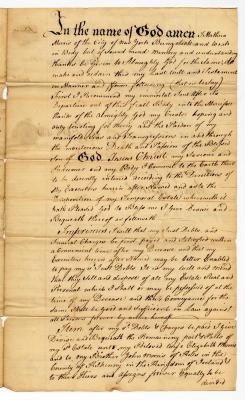 In the name of God amen I Mathew
Morris of the City of New York being weak
in Body but of Sound mind Memory and understanding
thanks be given to Almighty God for the same Do
make and ordain this my Last will and Testament
in Manner and Form following that is to Say
First I Recommend my immortal Soul upon its
Departure out of this frail Body unto the Merciful
Hands of the Almighty God my Creator hoping and
only trusting for Mercy and the Pardon of my
manifold Sins and Transgressions in and through
the meritorious Death and Passion of the Blessed
Son of God Jesus Christ my Saviour and
Redeemer and my Body I Commit to the Earth there
to be decently interred according to the Directions of
My Executors herein after Named and as to the
Disposition of my Temporal Estate wherewith it
hath Pleased God to Bless me I give Devise and
Bequeath thereof as followeth
Imprimis I will that my Just Debts and
Funeral Charges be first paid and Satisfied within
a Convenient time after my Decease and that my
Executors herein after Named may be better Enabled
to pay my Just Debts It is my will and order
that they sell and dispose of all my Estate Real and
Personal which I shall be possessed of at the
time of my Decease and their Conveyance for the
same Shall be good and sufficient in Law against
all Persons
Item after my Debts & Charges be paid I give
Devise and Bequeath the Remaining part
of my Estate unto my Beloved Elizabeth Morris
and to my Brother John Morris of
County of in the Kingdom of Ireland
to their Heirs and Assigns forever Equally to be